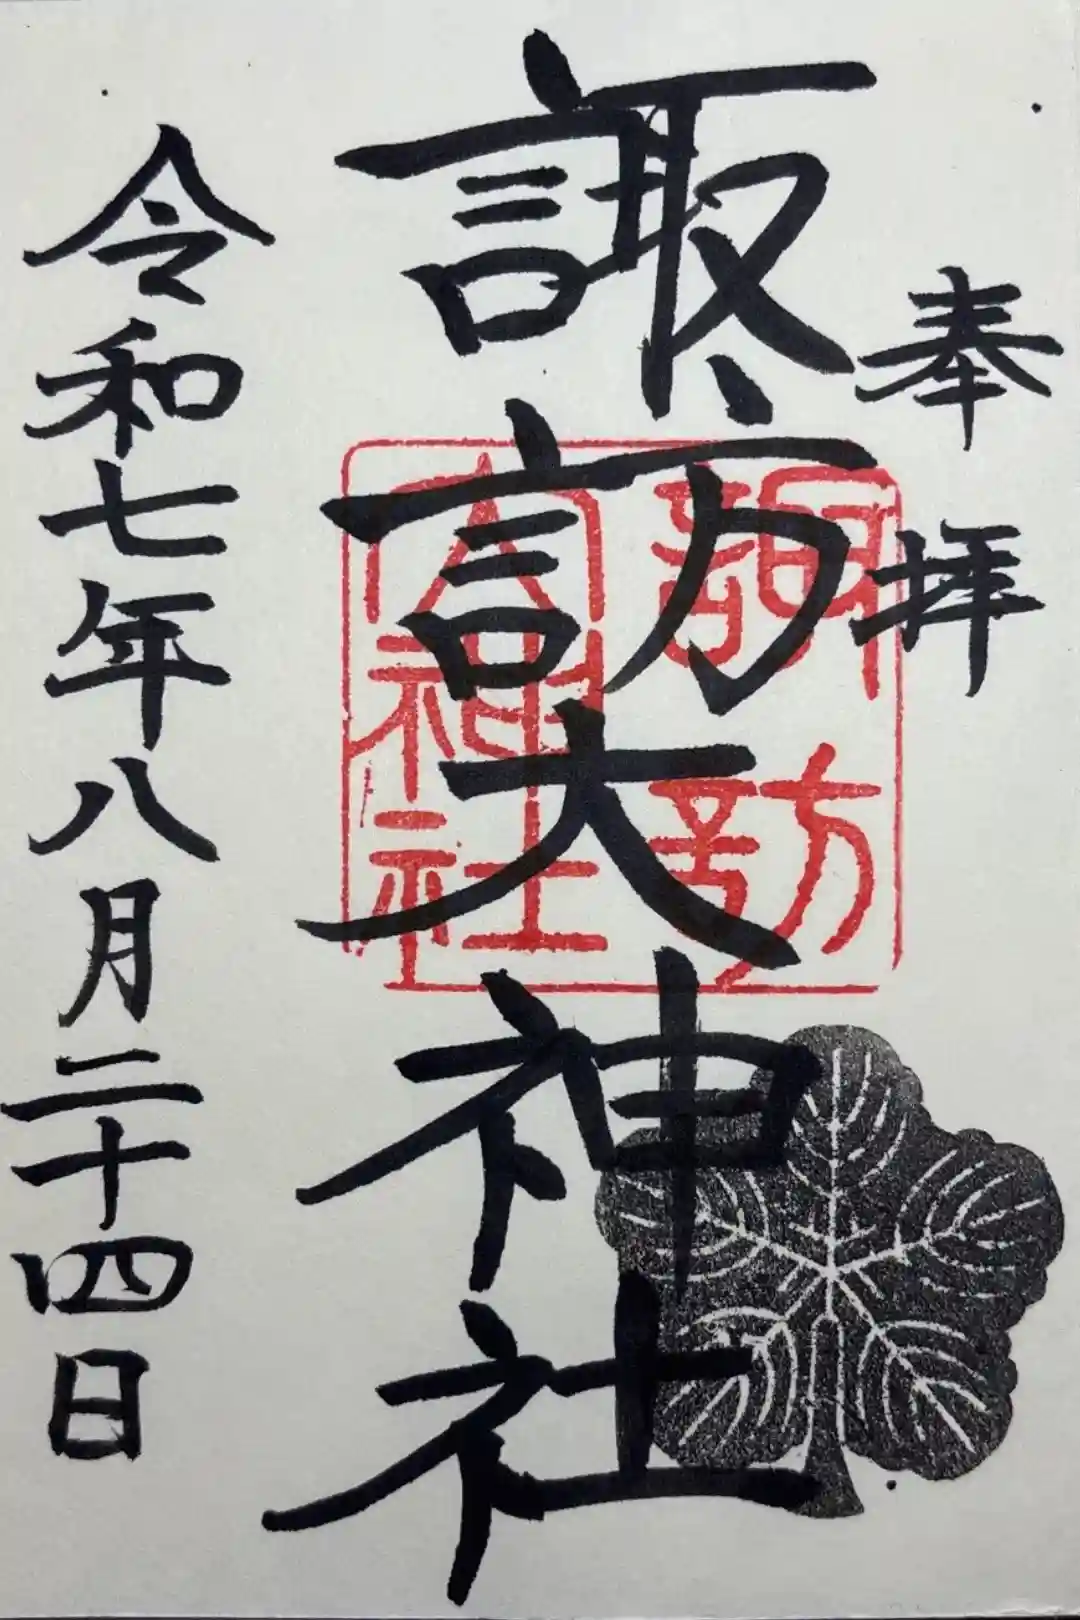 奉拝
諏訪大神社
諏訪
大神社
令和七年八月二十四日